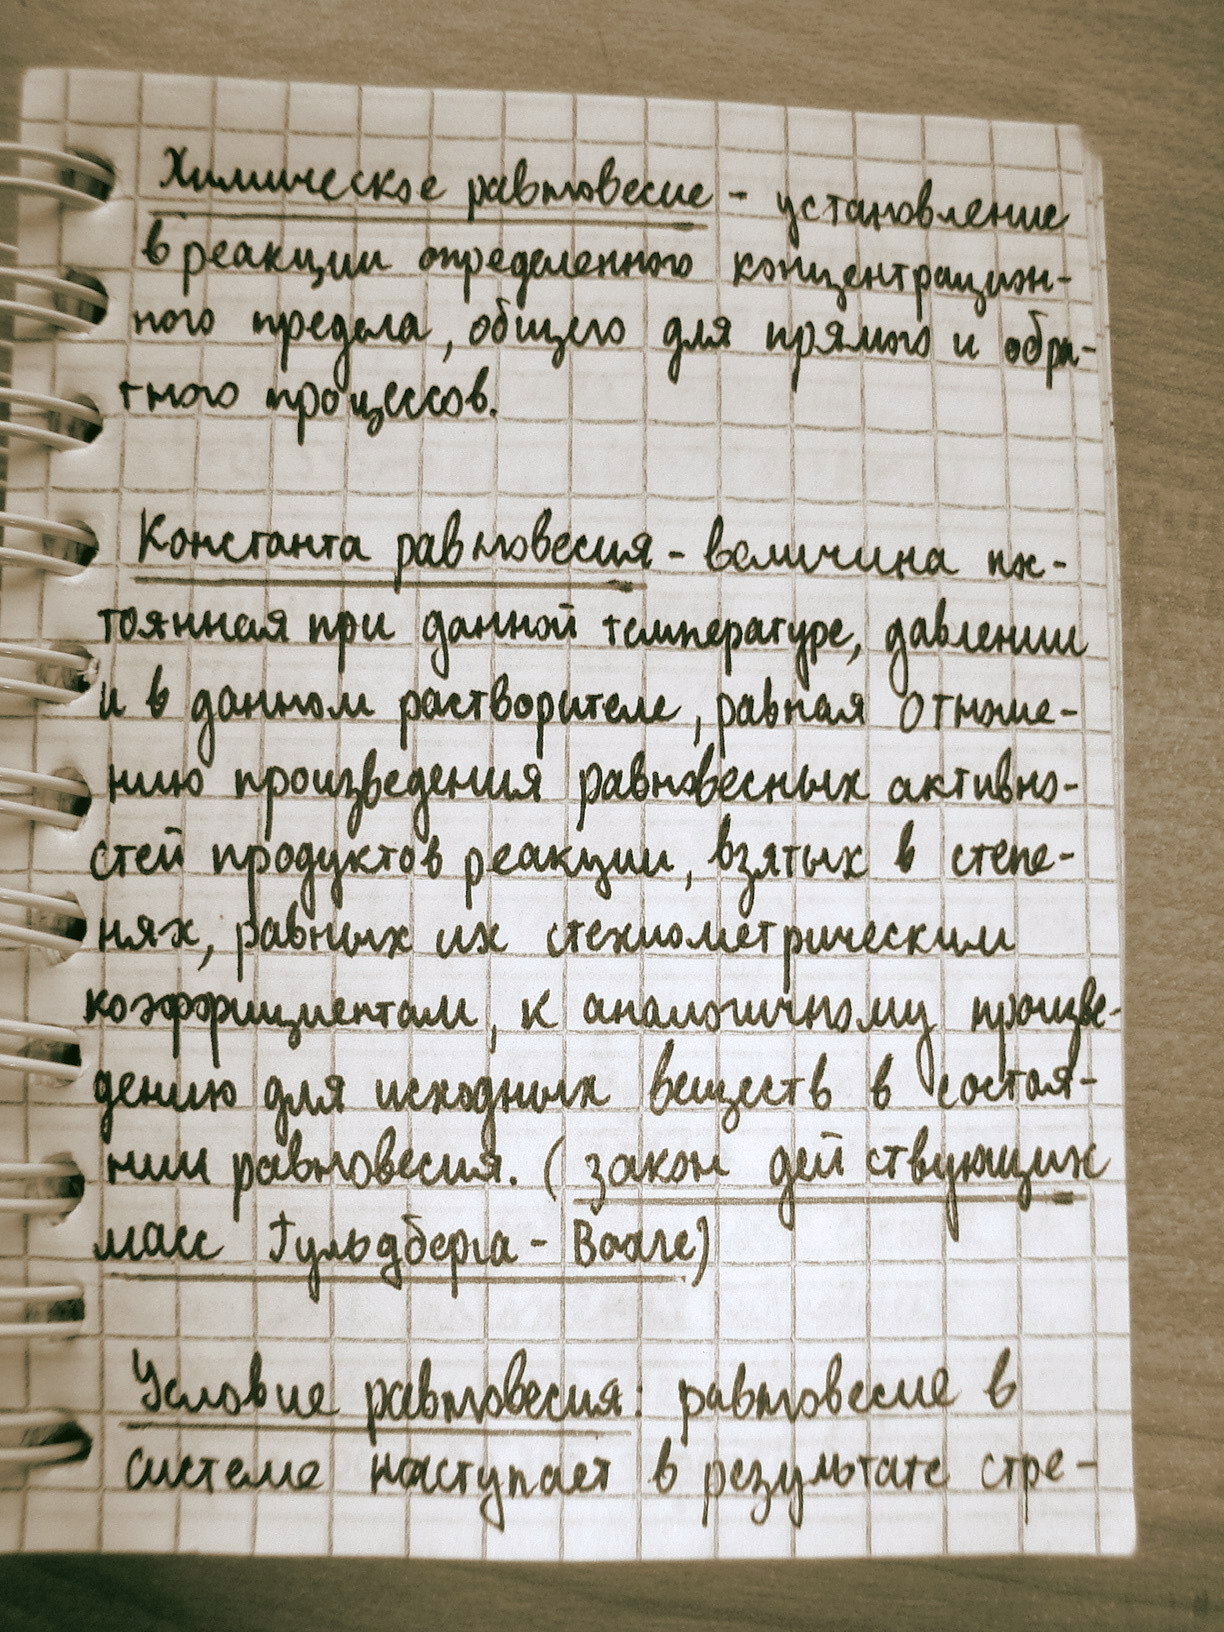 Химическое равновесие - установление
в реакции определенного концентрацион-
ного предела, общего для прямого и обра-
тного процессов.
Константа равновесия - величина пос-
тоянная при данной температуре, давлении
и в данном растворителе, равная отноше-
нию произведения равновесных активно-
стей продуктов реакции, взятых в степе-
нях, равных их стехиометрическим
коэффициентам, к аналогичному произве-
дению для исходных веществ в состоя-
нии равновесия. (закон действующих
масс Гульдберга - Вааге)
Условие равновесия: равновесие в
системе наступает в результате стре-